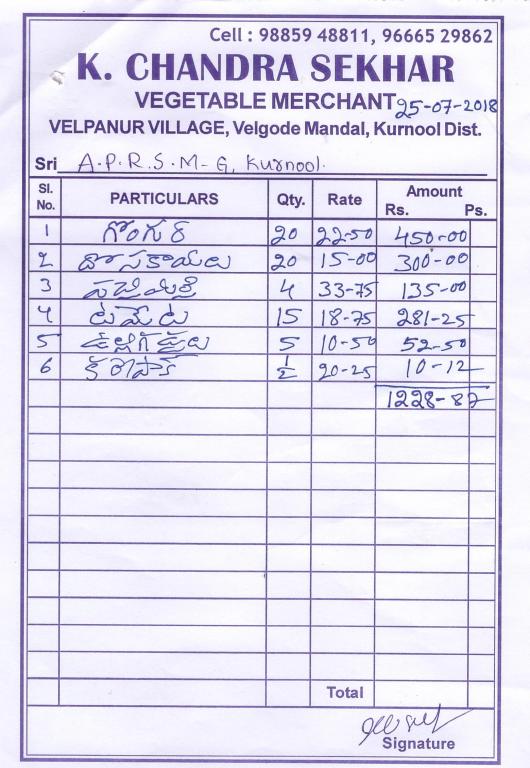 Cell : 98859 48811, 96665 29862
K. CHANDRA SEKHAR
VEGETABLE MERCHANT 25-07-2018
VELPANUR VILLAGE, Velgode Mandal, Kurnool Dist.
Sri A.P.R.S.M-G, Kurnool.
Sl. No. PARTICULARS Qty. Rate Amount Rs. Ps.
1 గోంగూర 20 22-50 450-00
2 దోసకాయలు 20 15-00 300-00
3 పచ్చిమిర్చి 4 33-75 135-00
4 టమోట 15 18-75 281-25
5 ఉల్లిగడ్డలు 5 10-50 52-50
6 1/2 20-25 10-12
1228-87
Total
Signature